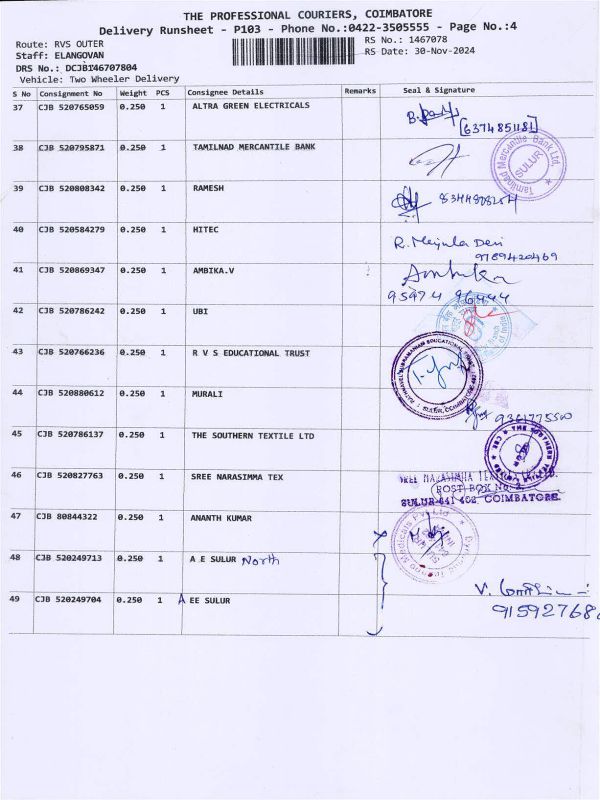 THE PROFESSIONAL COURIERS, COIMBATORE
Delivery Runsheet - P103 - Phone No.:0422-3505555 - Page No.:4
Route: RVS OUTER
RS No.: 1467078
Staff: ELANGOVAN
RS Date: 30-Nov-2024
DRS No.: DCJBI46707804
Vehicle: Two Wheeler Delivery
S No Consignment No Weight PCS Consignee Details Remarks Seal & Signature
37 CJB 520765059 0.250 1 ALTRA GREEN ELECTRICALS
[6374851181]
38 CJB 520795871 0.250 1 TAMILNAD MERCANTILE BANK
Tamilnad Mercantile Bank Ltd.
SULUR
39 CJB 520808342 0.250 1 RAMESH
8344808254
40 CJB 520584279 0.250 1 HITEC
R. Manjula Devi
9789420469
41 CJB 520869347 0.250 1 AMBIKA.V
Ambika
95974 96444
42 CJB 520786242 0.250 1 UBI
43 CJB 520766236 0.250 1 R V S EDUCATIONAL TRUST
44 CJB 520880612 0.250 1 MURALI
9361775500
45 CJB 520786137 0.250 1 THE SOUTHERN TEXTILE LTD
46 CJB 520827763 0.250 1 SREE NARASIMMA TEX
POST BOX No. 2,
SULUR-641 402, COIMBATORE.
47 CJB 80844322 0.250 1 ANANTH KUMAR
48 CJB 520249713 0.250 1 A E SULUR North
49 CJB 520249704 0.250 1 A EE SULUR
915927686